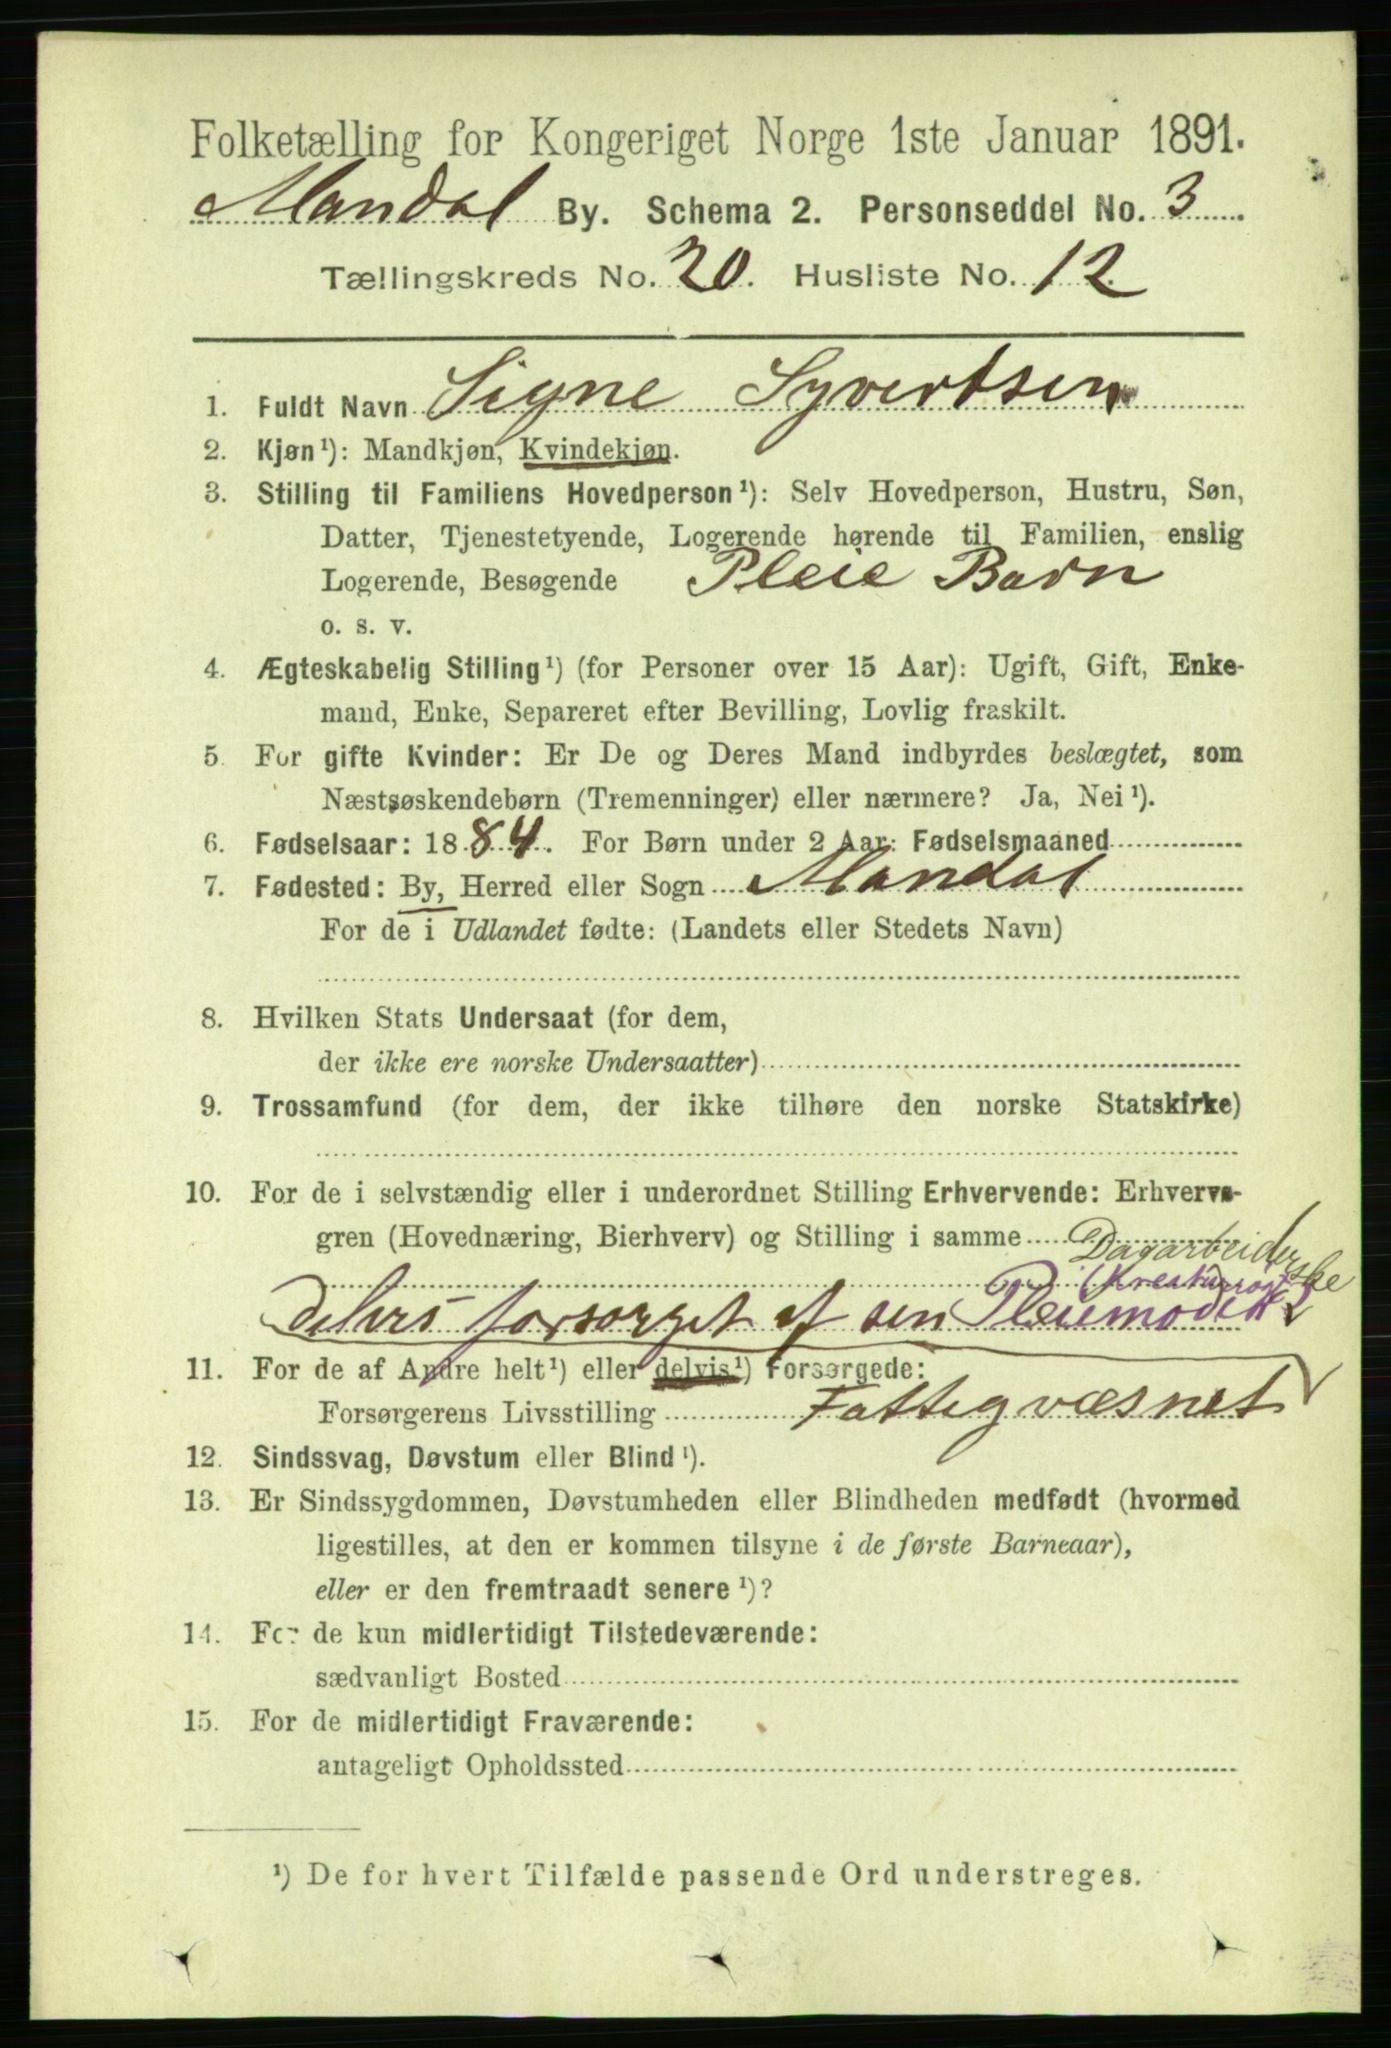 Folketælling for Kongeriget Norge 1ste Januar 1891.
Mandal By. Schema 2. Personseddel No. 3
Tællingskreds No. 20. Husliste No. 12.
1. Fuldt Navn Signe Syvertsen
2. Kjøn¹): Mandkjøn, Kvindekjøn.
3. Stilling til Familiens Hovedperson¹): Selv Hovedperson, Hustru, Søn,
Datter, Tjenestetyende, Logerende hørende til Familien, enslig
Logerende, Besøgende Pleie Barn
o. s. v.
4. Ægteskabelig Stilling¹) (for Personer over 15 Aar): Ugift, Gift, Enke-
mand, Enke, Separeret efter Bevilling, Lovlig fraskilt.
5. For gifte Kvinder: Er De og Deres Mand indbyrdes beslægtet, som
Næstsøskendebørn (Tremenninger) eller nærmere? Ja, Nei¹).
6. Fødselsaar: 1884. For Børn under 2 Aar: Fødselsmaaned
7. Fødested: By, Herred eller Sogn Mandal
For de i Udlandet fødte: (Landets eller Stedets Navn)
8. Hvilken Stats Undersaat (for dem,
der ikke ere norske Undersaatter)
9. Trossamfund (for dem, der ikke tilhøre den norske Statskirke)
10. For de i selvstændig eller i underordnet Stilling Erhvervende: Erhvervs-
gren (Hovednæring, Bierhverv) og Stilling i samme
Dagarbeiderske
delvis forsørget af sen Pleiemoder
11. For de af Andre helt¹) eller delvis¹) Forsørgede:
Forsørgerens Livsstilling Fattigvæsnet
12. Sindssvag, Døvstum eller Blind¹).
13. Er Sindssygdommen, Døvstumheden eller Blindheden medfødt (hvormed
ligestilles, at den er kommen tilsyne i de første Barneaar),
eller er den fremtraadt senere¹)?
14. For de kun midlertidigt Tilstedeværende:
sædvanligt Bosted
15. For de midlertidigt Fraværende:
antageligt Opholdssted
¹) De for hvert Tilfælde passende Ord understreges.